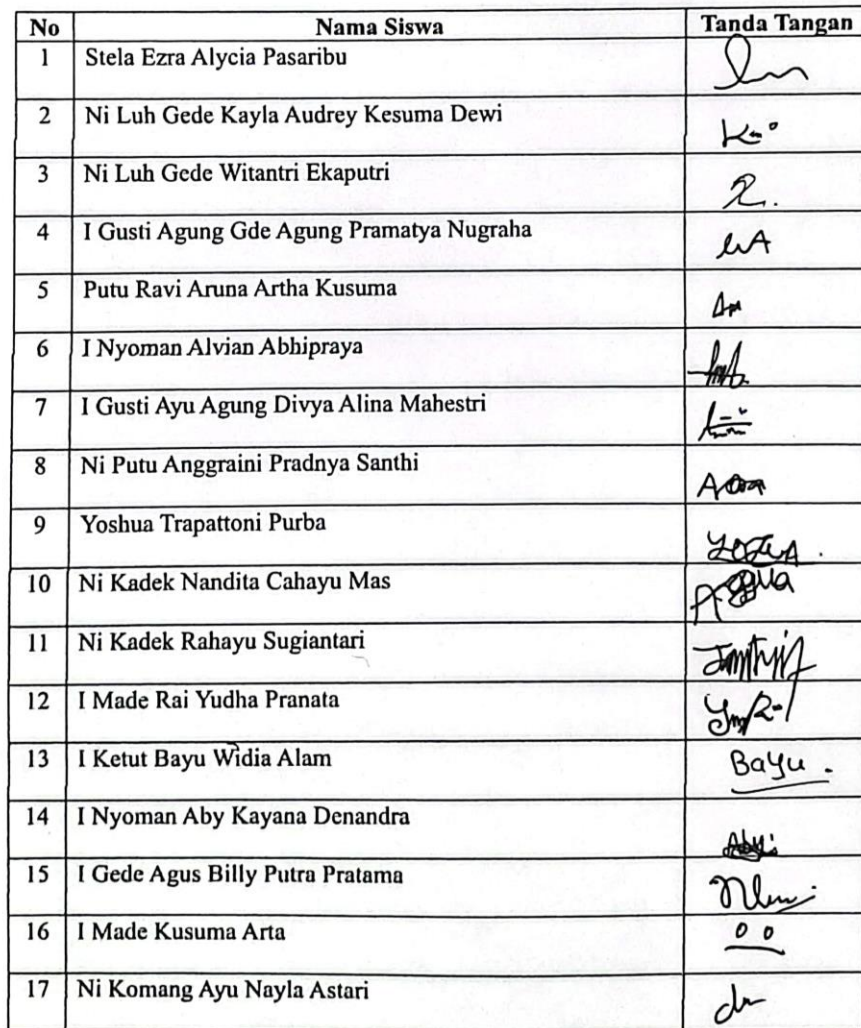 No Nama Siswa Tanda Tangan
1 Stela Ezra Alycia Pasaribu
2 Ni Luh Gede Kayla Audrey Kesuma Dewi
3 Ni Luh Gede Witantri Ekaputri
4 I Gusti Agung Gde Agung Pramatya Nugraha
5 Putu Ravi Aruna Artha Kusuma
6 I Nyoman Alvian Abhipraya
7 I Gusti Ayu Agung Divya Alina Mahestri
8 Ni Putu Anggraini Pradnya Santhi
9 Yoshua Trapattoni Purba
10 Ni Kadek Nandita Cahayu Mas
11 Ni Kadek Rahayu Sugiantari
12 I Made Rai Yudha Pranata
13 I Ketut Bayu Widia Alam Bayu.
14 I Nyoman Aby Kayana Denandra
15 I Gede Agus Billy Putra Pratama
16 I Made Kusuma Arta
17 Ni Komang Ayu Nayla Astari